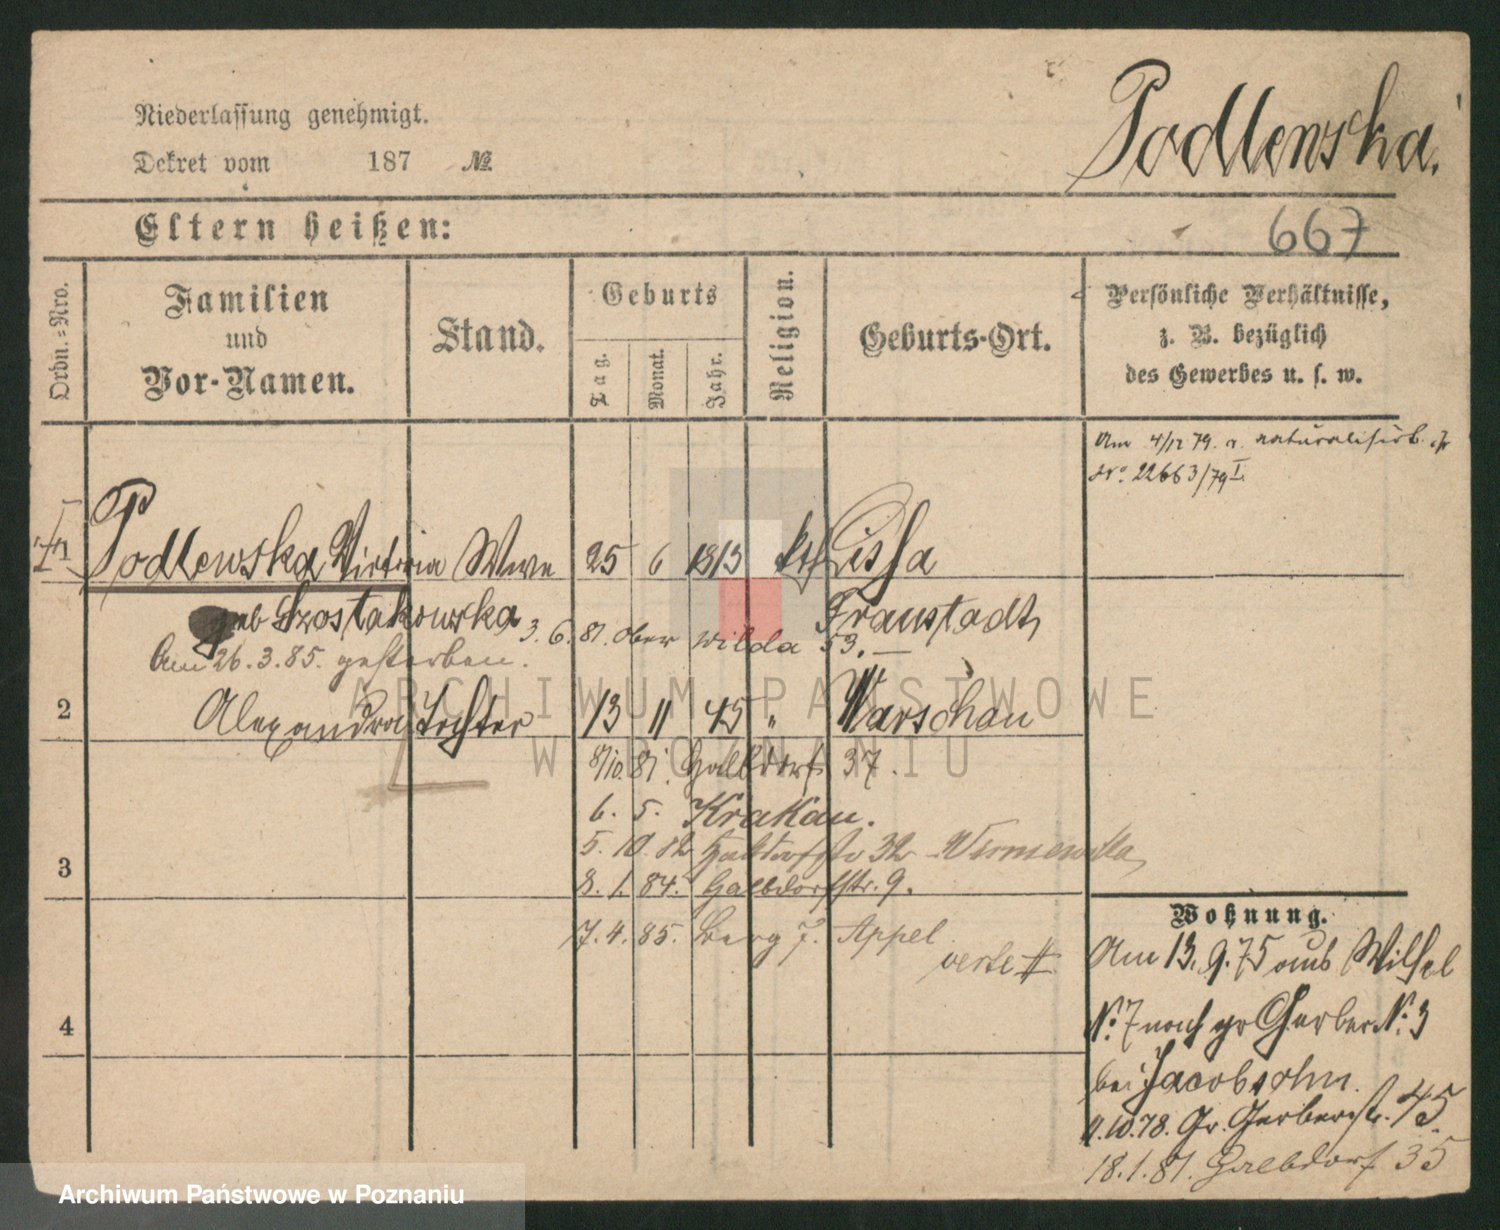 Niederlassung genehmigt.
Dekret vom 187 №
Podlewska.
Eltern heißen:
667
Ordn.-Nro.
Familien und Vor-Namen.
Stand.
Geburts
Tag.
Monat.
Jahr.
Religion.
Geburts-Ort.
Persönliche Verhältnisse,
z. B. bezüglich
des Gewerbes u. s. w.
Am 4/12 79. naturalisirt.
No. 22663/79 I.
Podlewska Victoria Wwe 25 6 1813 kt Lissa
geb Szostakowska Fraustadt
3. 6. 81. Ober Wilda 53.
Am 26. 3. 85. gestorben.
2 Alexandra Tochter 13 11 45 " Warschau
8/10. 81. Halbdorf 37.
6. 5. Krakau.
3
5. 10. 82 Halbdorfstr 32
8. 1. 84. Halbdorfstr. 9.
7. 4. 85. Berg 7. Appel
verte
4
Wohnung.
Am 13. 9. 75 aus Wilh
No. 7 nach gr Gerber No. 3
bei Jacobsohn.
9.10.78. Gr. Gerberstr. 45.
18.1.81. Halbdorf 35
ARCHIWUM PAŃSTWOWE
W POZNANIU
Archiwum Państwowe w Poznaniu